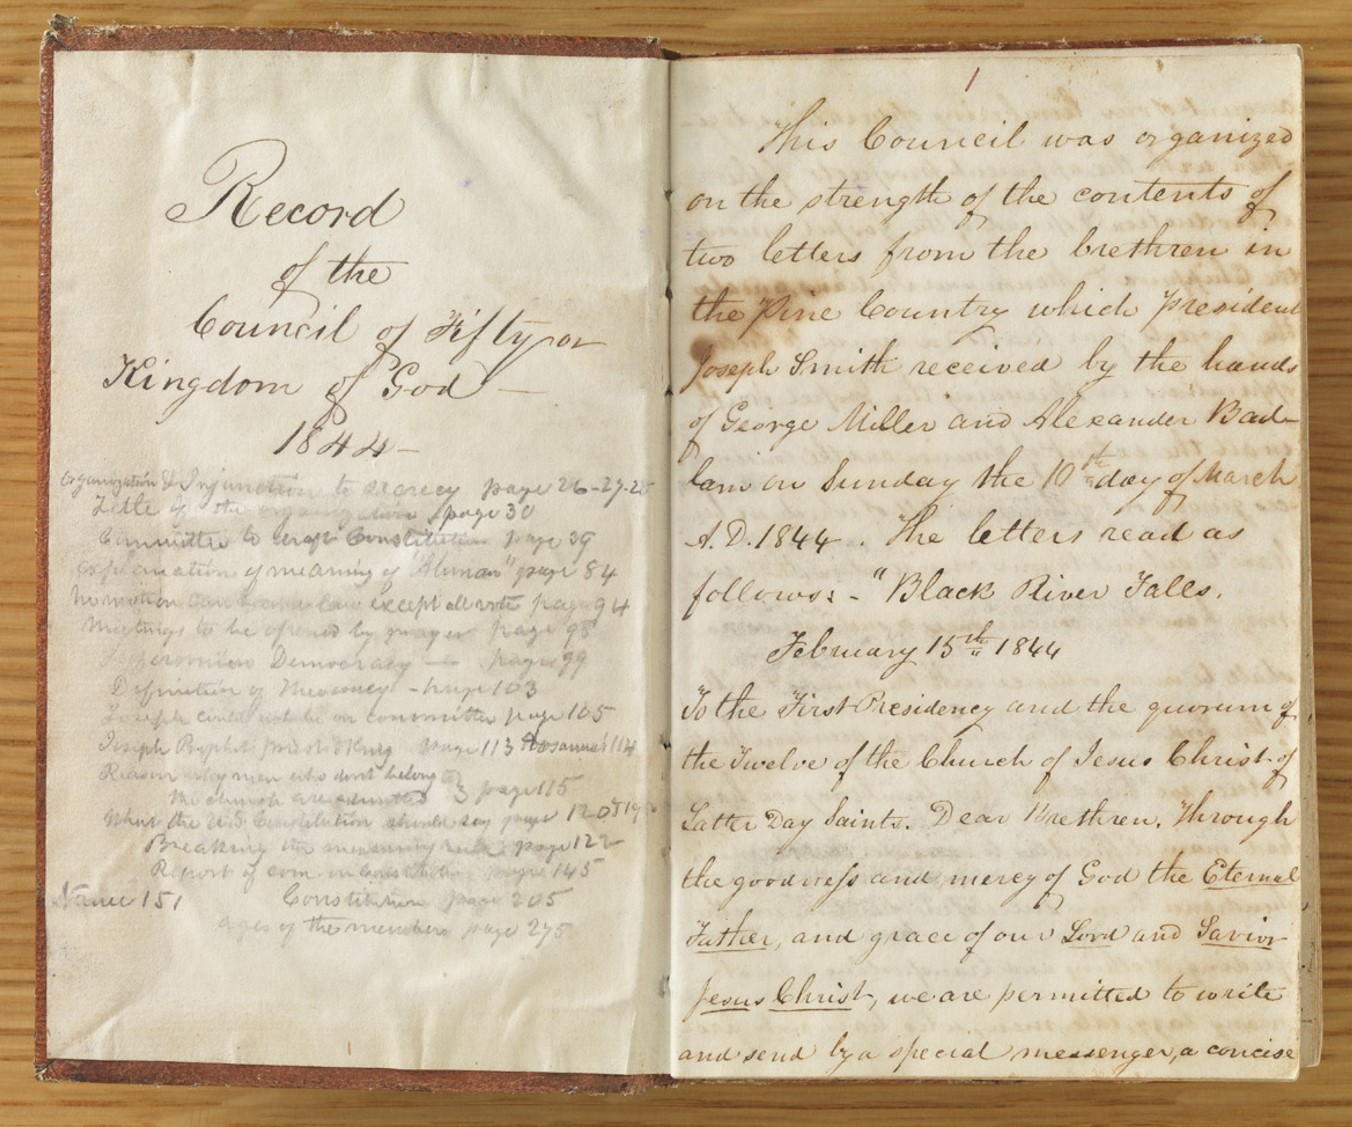 Record
of the
Council of Fifty or
Kingdom of God —
1844 —
organization & Injunction to secrecy page 26-27-28
Title of the organization, page 30
Committee to draft Constitution page 39
explanation of meaning of "Ahman" page 84
no motion can become law except all vote page 94
Meetings to be opened by prayer page 98
Democracy — page 99
Definition of Theocracy - page 103
Joseph could not be on committee page 105
Joseph Prophet, priest & King page 113 Hosanna's 114
Reason why men who dont belong to
the church are admitted page 115
What the U.S. Constitution should say page
Breaking the measuring rule page 122
Report of com. on Constitution page 145
Name 151 Constitution page 205
ages of the members page 275
1
This Council was organized
on the strength of the contents of
two letters from the brethren in
the Pine Country which president
Joseph Smith received by the hands
of George Miller and Alexander Bad-
lam on Sunday the 10th day of March
A.D. 1844. The letters read as
follows: - "Black River Falls.
February 15th 1844
To the First Presidency and the quorum of
the Twelve of the Church of Jesus Christ of
Latter Day Saints. Dear Brethren. Through
the goodness and mercy of God the Eternal
Father, and grace of our Lord and Savior
Jesus Christ, we are permitted to write
and send by a special messenger, a concise